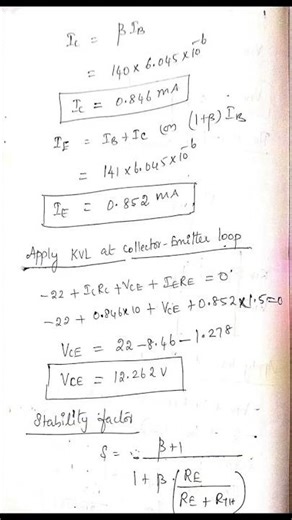 1
I_C = βI_B
= 140 × 6.045 × 10⁻⁶
I_C = 0.846 mA
I_E = I_B + I_C (or) (1+β) I_B
= 141 × 6.045 × 10⁻⁶
I_E = 0.852 mA
Apply KVL at Collector-Emitter loop
-22 + I_C R_C + V_CE + I_E R_E = 0
-22 + 0.846×10 + V_CE + 0.852 × 1.5 = 0
V_CE = 22 - 8.46 - 1.278
V_CE = 12.262 V
Stability factor
S = β+1
1 + β (R_E
R_E + R_TH)